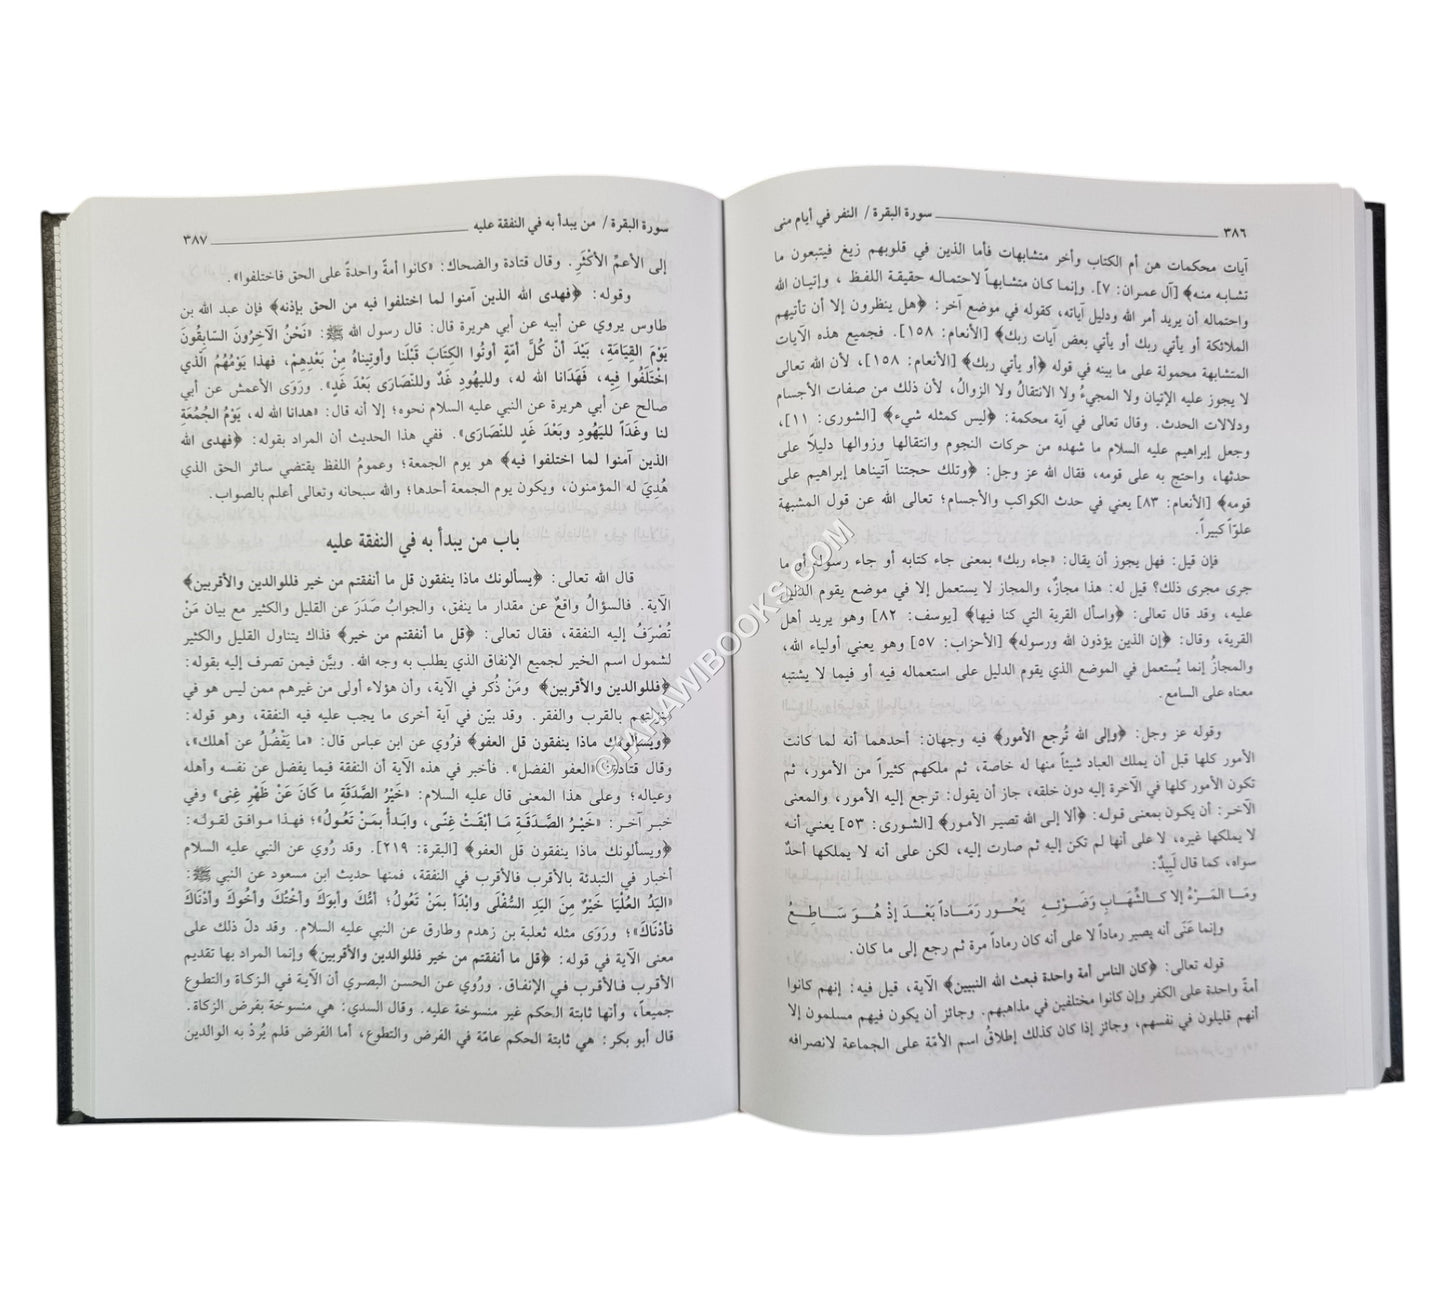 ٣٨٦ سورة البقرة/ النفر في أيام منى
آيات محكمات هن أم الكتاب وأخر متشابهات فأما الذين في قلوبهم زيغ فيتبعون ما
تشابه منه﴾ [آل عمران: ٧]. وإنما كان متشابهاً لاحتماله حقيقة اللفظ، وإتيان الله
واحتماله أن يريد أمر الله ودليل آياته، كقوله في موضع آخر: ﴿هل ينظرون إلا أن تأتيهم
الملائكة أو يأتي ربك أو يأتي بعض آيات ربك﴾ [الأنعام: ١٥٨]. فجميع هذه الآيات
المتشابهة محمولة على ما بينه في قوله ﴿أو يأتي ربك﴾ [الأنعام: ١٥٨]، لأن الله تعالى
لا يجوز عليه الإتيان ولا المجيءُ ولا الانتقالُ ولا الزوالُ، لأن ذلك من صفات الأجسام
ودلالات الحدث. وقال تعالى في آية محكمة: ﴿ليس كمثله شيء﴾ [الشورى: ١١]،
وجعل إبراهيم عليه السلام ما شهده من حركات النجوم وانتقالها وزوالها دليلاً على
حدثها، واحتج به على قومه، فقال الله عز وجل: ﴿وتلك حجتنا آتيناها إبراهيم على
قومه﴾ [الأنعام: ٨٣] يعني في حدث الكواكب والأجسام؛ تعالى الله عن قول المشبهة
علوّاً كبيراً.
فإن قيل: فهل يجوز أن يقال: «جاء ربك» بمعنى جاء كتابه أو جاء رسوله أو ما
جرى مجرى ذلك؟ قيل له: هذا مجازٌ، والمجاز لا يستعمل إلا في موضع يقوم الدليل
عليه، وقد قال تعالى: ﴿واسأل القرية التي كنا فيها﴾ [يوسف: ٨٢] وهو يريد أهل
القرية، وقال: ﴿إن الذين يؤذون الله ورسوله﴾ [الأحزاب: ٥٧] وهو يعني أولياء الله،
والمجازُ إنما يُستعمل في الموضع الذي يقوم الدليل على استعماله فيه أو فيما لا يشتبه
معناه على السامع.
وقوله عز وجل: ﴿وإلى الله تُرجع الأمور﴾ فيه وجهان: أحدهما أنه لما كانت
الأمور كلها قبل أن يملك العباد شيئاً منها له خاصة، ثم ملكهم كثيراً من الأمور، ثم
تكون الأمور كلها في الآخرة إليه دون خلقه، جاز أن يقول: ترجع إليه الأمور، والمعنى
الآخر: أن يكون بمعنى قوله: ﴿ألا إلى الله تصير الأمور﴾ [الشورى: ٥٣] يعني أنه
لا يملكها غيره، لا على أنها لم تكن إليه ثم صارت إليه، لكن على أنه لا يملكها أحدٌ
سواه، كما قال لَبِيدٌ:
ومَا المَرْءُ إلا كالشِّهَابِ وَضَوْئِهِ يَحُور رَمَاداً بَعْدَ إذْ هُوَ سَاطِعُ
وإنما عَنَى أنه يصير رماداً لا على أنه كان رماداً مرة ثم رجع إلى ما كان.
قوله تعالى: ﴿كان الناس أمة واحدة فبعث الله النبيين﴾ الآية، قيل فيه: إنهم كانوا
أمةً واحدة على الكفر وإن كانوا مختلفين في مذاهبهم. وجائز أن يكون فيهم مسلمون إلا
أنهم قليلون في نفسهم، وجائز إذا كان كذلك إطلاقُ اسم الأمّة على الجماعة لانصرافه
سورة البقرة/ من يبدأ به في النفقة عليه ٣٨٧
إلى الأعمِّ الأكْثَرِ. وقال قتادة والضحاك: «كانوا أمةً واحدةً على الحق فاختلفوا».
وقوله: ﴿فهدى الله الذين آمنوا لما اختلفوا فيه من الحق بإذنه﴾ فإن عبد الله بن
طاوس يروي عن أبيه عن أبي هريرة قال: قال رسول الله ﷺ: «نَحْنُ الآخِرُونَ السَّابِقُونَ
يَوْمَ القِيَامَةِ، بَيْدَ أنّ كُلَّ أمّةٍ أوتُوا الكِتَابَ قَبْلَنا وأوتِيناهُ مِنْ بَعْدِهِمْ، فهذا يَوْمُهُمُ الّذي
اخْتَلَفُوا فِيهِ، فَهَدَانا الله له، ولليهُودِ غَدٌ وللنّصَارَى بَعْدَ غَدٍ». ورَوَى الأعمش عن أبي
صالح عن أبي هريرة عن النبي عليه السلام نحوه؛ إلا أنه قال: «هدانا الله له، يَوْمُ الجُمُعَةِ
لنا وغَدَاً لليَهُودِ وبَعْدَ غَدٍ للنّصَارَى». ففي هذا الحديث أن المراد بقوله: ﴿فهدى الله
الذين آمنوا لما اختلفوا فيه﴾ هو يوم الجمعة؛ وعمومُ اللفظ يقتضي سائر الحق الذي
هُدِيَ له المؤمنون، ويكون يوم الجمعة أحدها؛ والله سبحانه وتعالى أعلم بالصواب.
باب من يبدأ به في النفقة عليه
قال الله تعالى: ﴿يسألونك ماذا ينفقون قل ما أنفقتم من خير فللوالدين والأقربين﴾
الآية. فالسؤالُ واقعٌ عن مقدار ما ينفق، والجوابُ صَدَرَ عن القليل والكثير مع بيان مَنْ
تُصْرَفُ إليه النفقة، فقال تعالى: ﴿قل ما أنفقتم من خير﴾ فذاك يتناول القليل والكثير
لشمول اسم الخير لجميع الإنفاق الذي يطلب به وجه الله. وبيَّن فيمن تصرف إليه بقوله:
﴿فللوالدين والأقربين﴾ ومَنْ ذُكر في الآية، وأن هؤلاء أولى من غيرهم ممن ليس هو في
منزلتهم بالقرب والفقر. وقد بيّن في آية أخرى ما يجب عليه فيه النفقة، وهو قوله:
﴿ويسألونك ماذا ينفقون قل العفو﴾ فرُوي عن ابن عباس قال: «ما يَفْضُلُ عن أهلك»،
وقال قتادة: «العفو الفضل». فأخبر في هذه الآية أن النفقة فيما يفضل عن نفسه وأهله
وعياله؛ وعلى هذا المعنى قال عليه السلام: «خَيْرُ الصَّدَقَةِ ما كَانَ عَنْ ظَهْرِ غِنى» وفي
خبر آخر: «خَيْرُ الصَّدَقَةِ مَا أبْقَتْ غِنًى، وابدأ بمَنْ تَعُولُ»؛ فهذا موافق لقوله:
﴿ويسألونك ماذا ينفقون قل العفو﴾ [البقرة: ٢١٩]. وقد رُوي عن النبي عليه السلام
أخبار في التبدئة بالأقرب فالأقرب في النفقة، فمنها حديث ابن مسعود عن النبي ﷺ:
«اليَدُ العُلْيَا خَيْرٌ مِنَ اليَدِ السُّفْلَى وابْدَأ بمَنْ تَعُولُ؛ أمُّكَ وأبوَكَ وأخْتُكَ وأخُوكَ وأدْنَاكَ
فأدْنَاكَ»؛ ورَوَى مثله ثعلبة بن زهدم وطارق عن النبي عليه السلام. وقد دلّ ذلك على
معنى الآية في قوله: ﴿قل ما أنفقتم من خير فللوالدين والأقربين﴾ وإنما المراد بها تقديم
الأقرب فالأقرب في الإنفاق. ورُوي عن الحسن البصري أن الآية في الزكاة والتطوع
جميعاً، وأنها ثابتة الحكم غير منسوخة عليه. وقال السدي: هي منسوخة بفرض الزكاة.
قال أبو بكر: هي ثابتة الحكم عامّة في الفرض والتطوع، أما الفرض فلم يُرِدْ به الوالدين
©TAHAWIBOOKS.COM